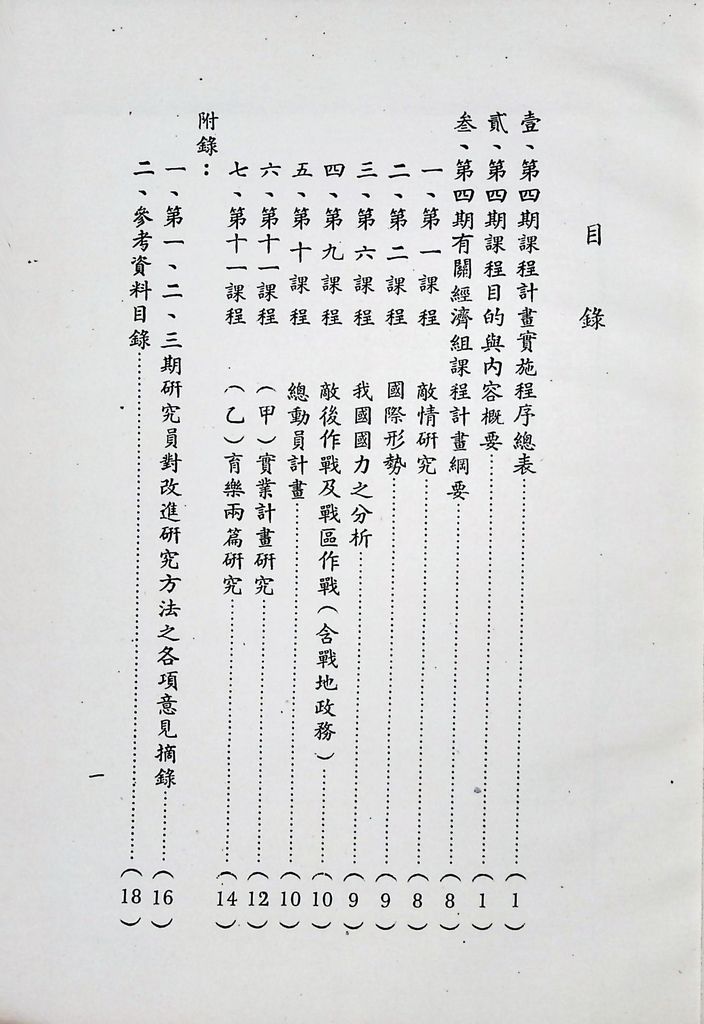 目錄
壹、第四期課程計畫實施程序總表………（1）
貳、第四期課程目的與內容概要………（1）
叁、第四期有關經濟組課程計畫綱要………（8）
一、第一課程 敵情研究………（8）
二、第二課程 國際形勢………（9）
三、第六課程 我國國力之分析………（9）
四、第九課程 敵後作戰及戰區作戰（含戰地政務）………（10）
五、第十課程 總動員計畫………（10）
六、第十一課程 （甲）實業計畫研究………（12）
七、第十一課程 （乙）育樂兩篇研究………（14）
附錄：
一、第一、二、三期研究員對改進研究方法之各項意見摘錄………（16）
二、參考資料目錄………（18）
一